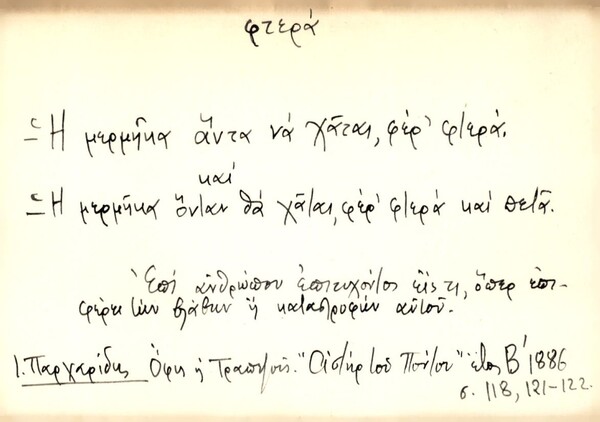 φτερά
Ἡ μερμῆκα ἄντα νὰ χᾶται, φέρ' φτερά.
καὶ
Ἡ μερμῆκα ὅνταν θὰ χᾶται, φέρ' φτερὰ καὶ πετᾶ.
Ἐπὶ ἀνθρώπου ἐπιτυχόντος εἴς τι, ὅπερ ἐπι-
φέρει τὴν βλάβην ἢ καταστροφὴν αὐτοῦ.
Ι. Παρχαρίδης Ὄφη ἡ Τραπεζοῦς. "Ὁ Ἀστὴρ τοῦ Πόντου" ἔτος Β' 1886
σ. 118, 121-122.